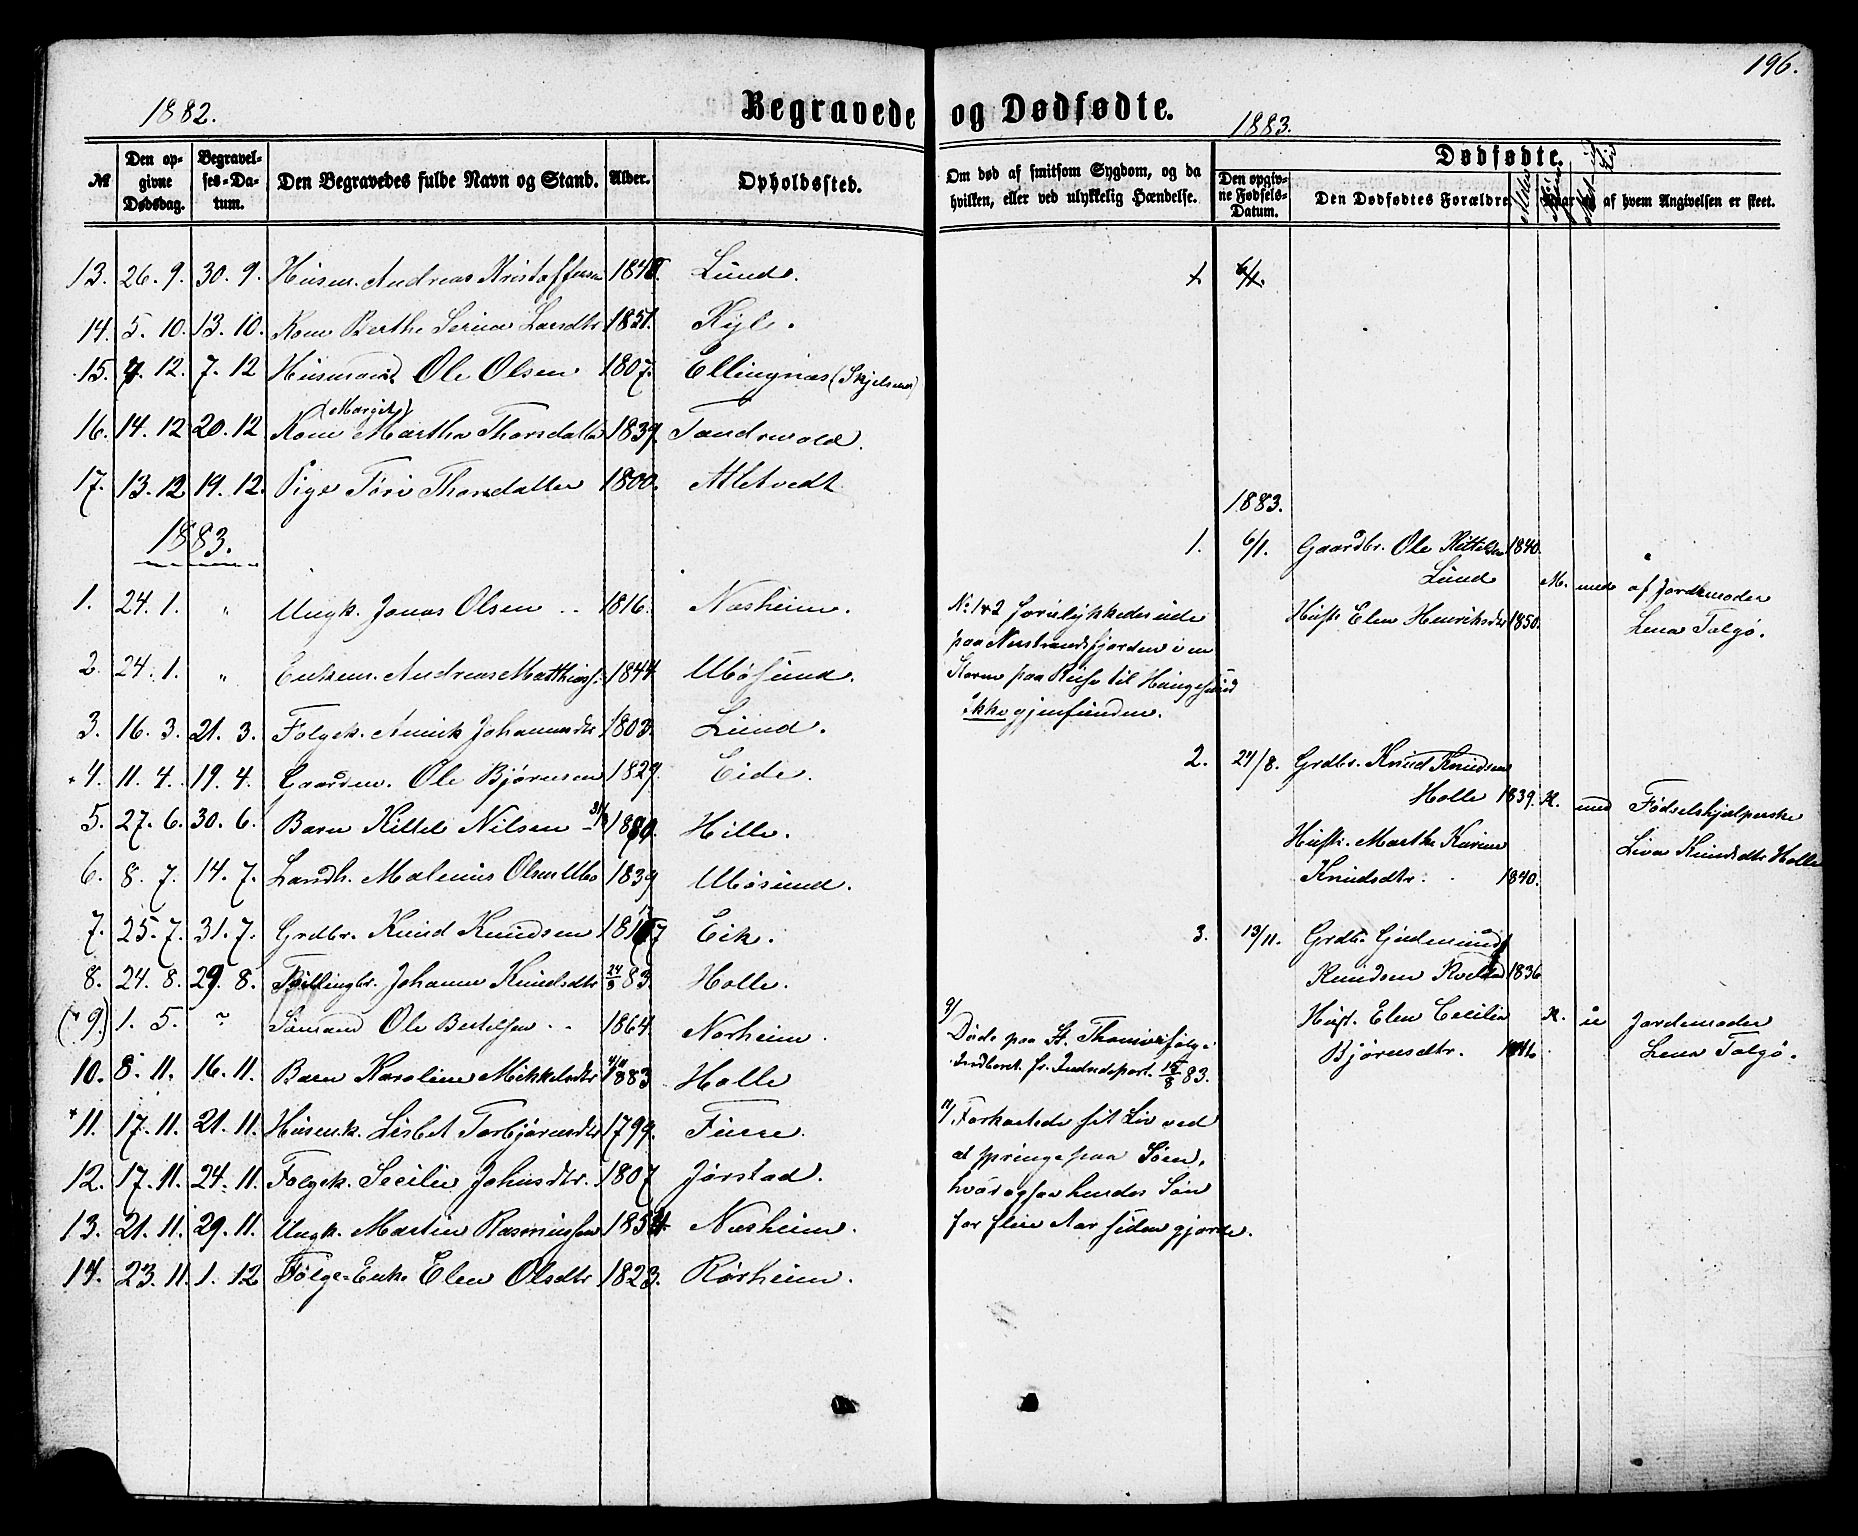 196.
1882.
Begravede og Dødfødte.
1883.
№ | Den opgivne Dødsdag. | Begravelses-Datum. | Den Begravedes fulde Navn og Stand. | Alder. | Opholdssted.
13. 26. 9. 30. 9. Husm. Andreas Kristoffersen Lunde.
14. 5. 10. 13. 10. Kone Berthe Serina Larsdtr 1851. Kyle.
15. 7. 12. 7. 12 Husmand Ole Olsen 1807. Ellingnæs (Skjelsnæs)
(Margit)
16. 14. 12 20. 12 Kone Martha Thorsdatter 1839.
17. 13. 12 19. 12. Pige Tóri Thorsdatter 1800. Atletvedt
1883.
1. 24. 1. " Ungk. Jonas Olsen 1816. Næsheim.
2. 24. 1. " Enkem. Andreas Matthiass. 1844. Ubøsund.
3. 16. 3. 21. 3. Følgek. Johannesdtr 1803. Lund.
+ 4. 11. 4. 19. 4. Gaardm. Ole Bjørnsen 1829. Eide.
5. 27. 6. 30. 6. Barn Kittel Nilsen Hille.
6. 8. 7. 14. 7. Landh. Malenius Olsen Ubø 1839 Ubøsund.
7. 25. 7. 31. 7. Grdbr. Knud Knudsen Eik.
8. 24. 8. 29. 8. Tvillingbr. Johanne Knudsdtr 24/8 83. Halle.
(9.) 1. 5. " Sømand Ole Bertelsen 1864. Norheim.
10. 8. 11. 16. 11. Barn Karoline Mikkelsdtr 1883 Halle
+ 11. 17. 11. 21. 11. Husm.k. Lisbet Torbjørnsdtr 1799. Furre.
12. 17. 11. 24. 11. Følgek. Secilie Johnsdtr. 1807 Jørstad.
13. 21. 11. 29. 11. Ungk. Martin Rasmussen Næsheim.
14. 23. 11. 1. 12 Følge-Enke Elen Olsdtr 1823. Rørheim.
Om død af smitsom Sygdom, og da hvilken, eller ved ulykkelig Hændelse.
No. 1 & 2 forulykkedes ude
paa Nerstrandsfjorden i en
Storm paa Reise til Haugesund
Ikke gjenfunden.
9/
Døde paa St. Thomas ifølge
Indberet. fr. Indredepart. 83.
11/ Forkortede sit Liv ved
at springe paa Søen,
hvor ogsaa hendes Søn
for flere Aar siden gjorde.
Dødfødte.
Den opgivne Fødsels-Datum. | Den Dødfødtes Forældre | af hvem Angivelsen er skeet.
1 6/1.
1883.
1. 6/1. Gaardbr. Ole Kittelsen 1840.
Lund M. af Jordemoder
Hust. Elen Henriksdtr 1850. Lena Talgø.
2. 24/8. Grdbr. Knud Knudsen
Halle 1839. K. med Fødselshjælperske
Hust. Marthe Karine Liva Knudsdtr Halle
Knudsdtr. 1840.
3. 13/11. Grdbr. Gudmund
Knudsen 1836
Hust. Elen Cecilia K. u Jordemoder
Bjørnsdtr. Lena Talgø.